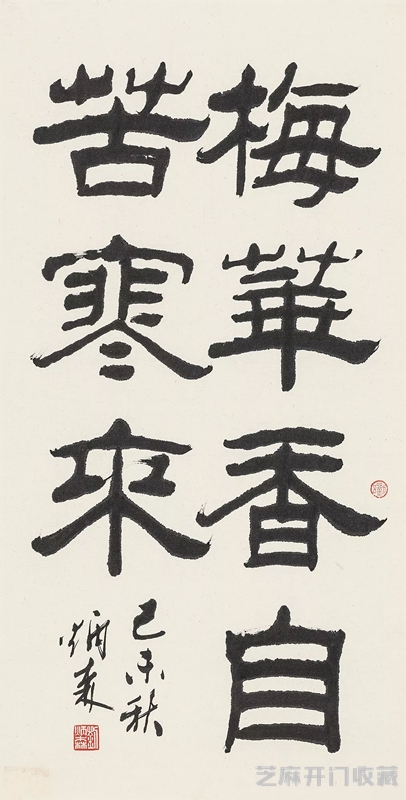 梅華香自
苦寒來
己未秋
炳森
芝麻开门收藏